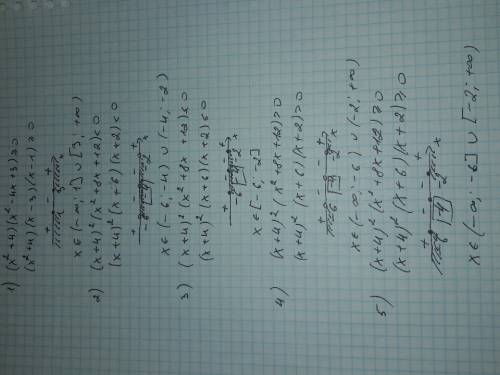 1) (x²+4)(x²-4x+3)≥0
(x²+4)(x-3)(x-1)≥0
+ - +
x
x∈(-∞; 1]∪[3; +∞)
2) (x+4)²(x²+8x+12)<0
(x+4)²(x+6)(x+2)<0
+ - - +
-6 -4 -2 x
x∈(-6; -4)∪(-4; -2)
3) (x+4)²(x²+8x+12)≤0
(x+4)²(x+6)(x+2)≤0
+ - +
-6 -2 x
x∈[-6; -2]
4) (x+4)²(x²+8x+12)>0
(x+4)²(x+6)(x+2)>0
+ - - +
-6 -4 -2 x
x∈(-∞; -6)∪(-2; +∞)
5) (x+4)²(x²+8x+12)≥0
(x+4)²(x+6)(x+2)≥0
+ - - +
-6 -4 -2 x
x∈(-∞; -6]∪[-2; +∞)